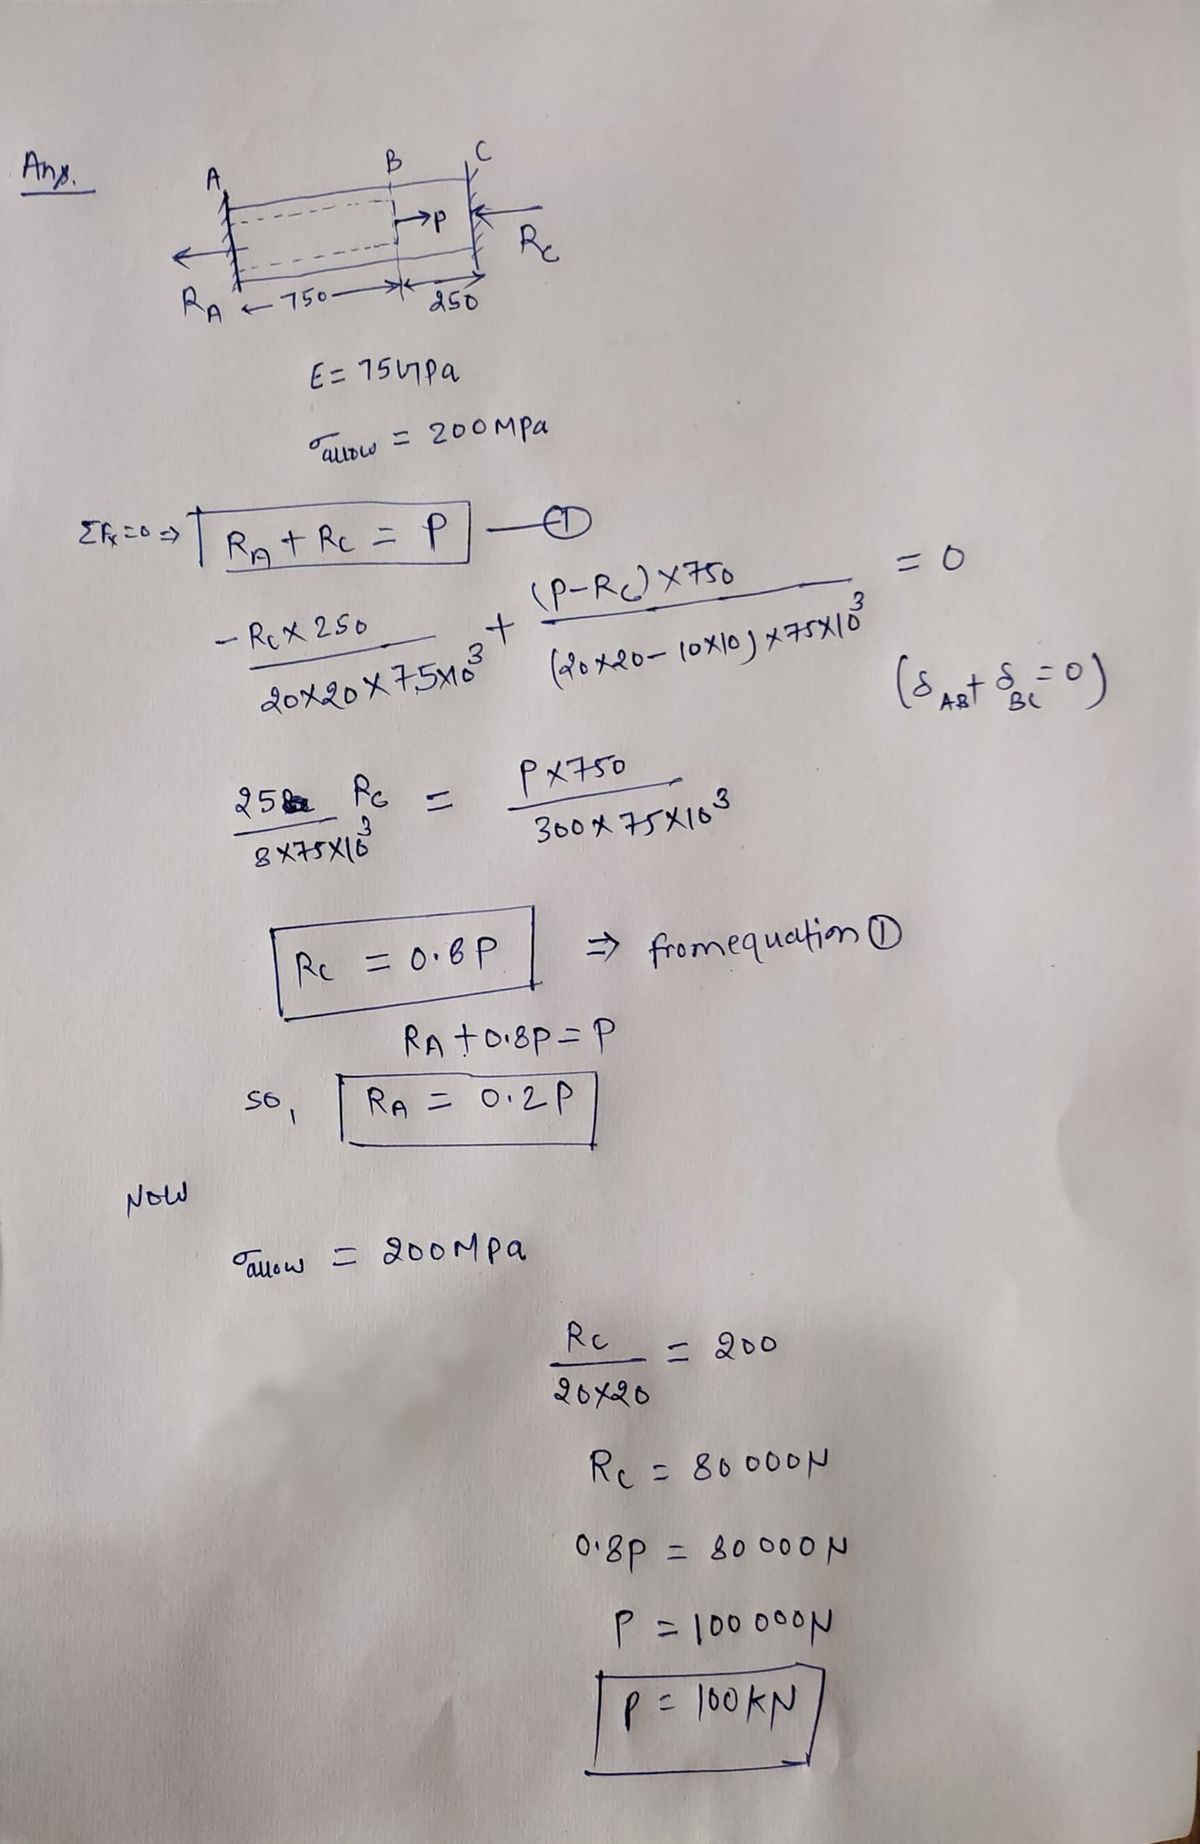 Ans.
A B C
→P
R_A R_C
← 750 → 250
E = 75GPa
σ_allow = 200MPa
ΣFx=0 ⇒ R_A + R_C = P — ①
(-R_C × 250)/(20×20×75×10³) + ((P-R_C)×750)/((20×20-10×10)×75×10³) = 0
(δ_AB + δ_BC = 0)
25/(8×75×10³) R_C = (P×750)/(300×75×10³)
R_C = 0.8P ⇒ from equation ①
R_A + 0.8P = P
so, R_A = 0.2P
Now
σ_allow = 200MPa
R_C/(20×20) = 200
R_C = 80000N
0.8P = 80000N
P = 100000N
P = 100KN